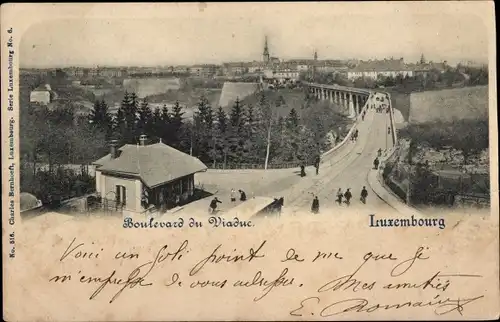 No. 516. Charles Bernhoeft, Luxembourg. Serie Luxembourg No. 6.
Boulevard du Viaduc.
Luxembourg
Voici un joli point de vue que je
m'empresse de vous adresser
Mes amitiés
E. Romain